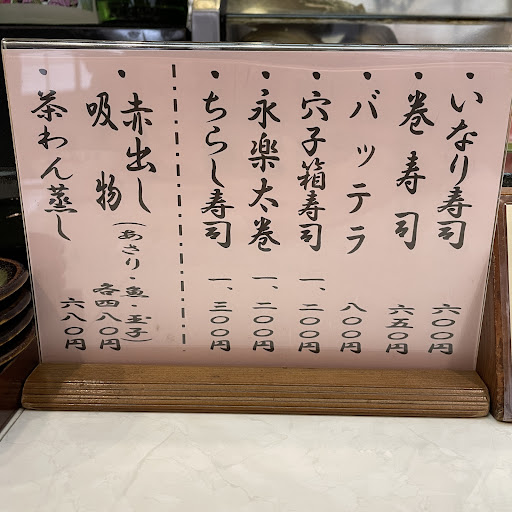 ・いなり寿司 六〇〇円
・巻寿司 六五〇円
・バッテラ 八〇〇円
・穴子箱寿司 一、二〇〇円
・永楽太巻 一、二〇〇円
・ちらし寿司 一、三〇〇円
・赤出し
吸物
(あさり・魚・玉子)
各四八〇円
・茶わん蒸し 六八〇円